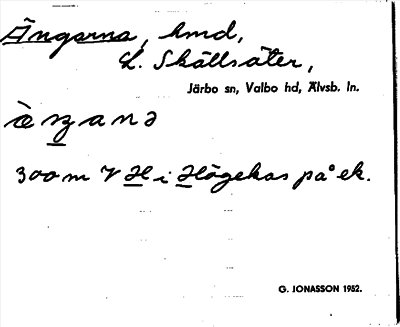 Ängarna, hmd,
L. Skällsäter,
Järbo sn, Valbo hd, Älvsb. ln.
300 m V H i Högekas på ek.
G. JONASSON 1952.